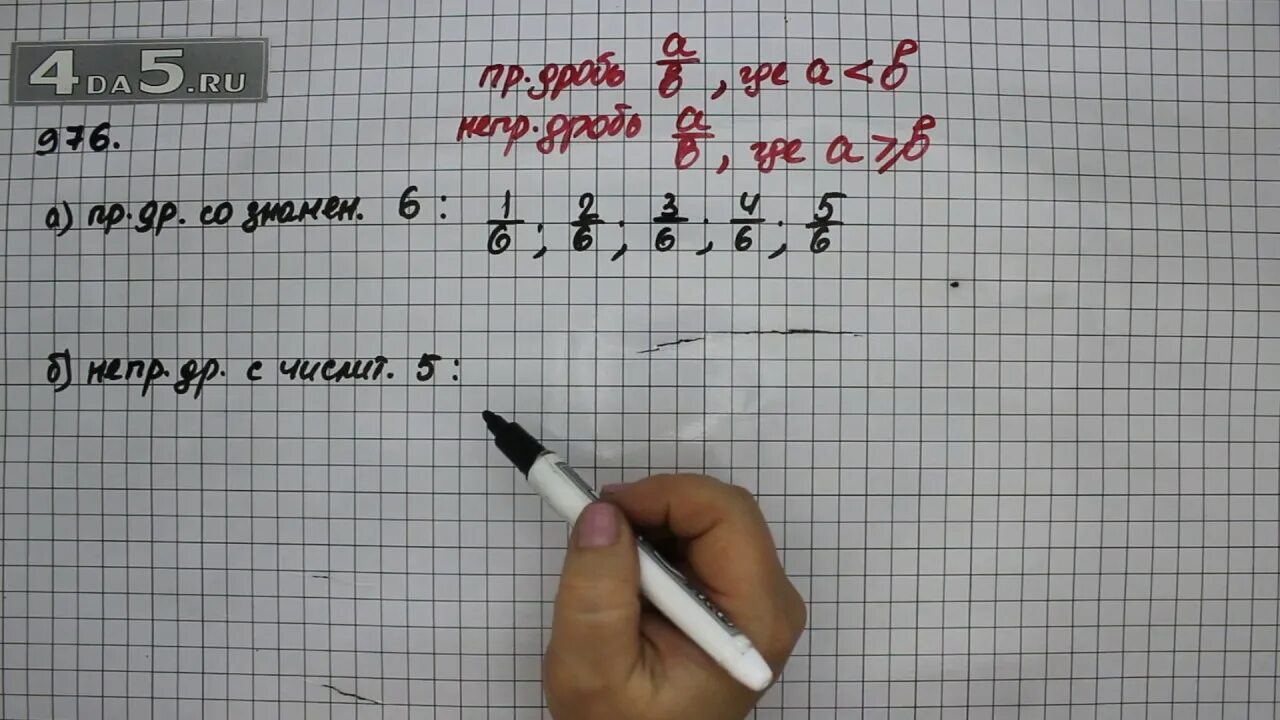 4DA5.RU
пр. дробь a/b, где a < b
непр. дробь a/b, где a ⩾ b
976.
а) пр. др. со знамен. 6 : 1/6 ; 2/6 ; 3/6 ; 4/6 ; 5/6
б) непр. др. с числит. 5 :